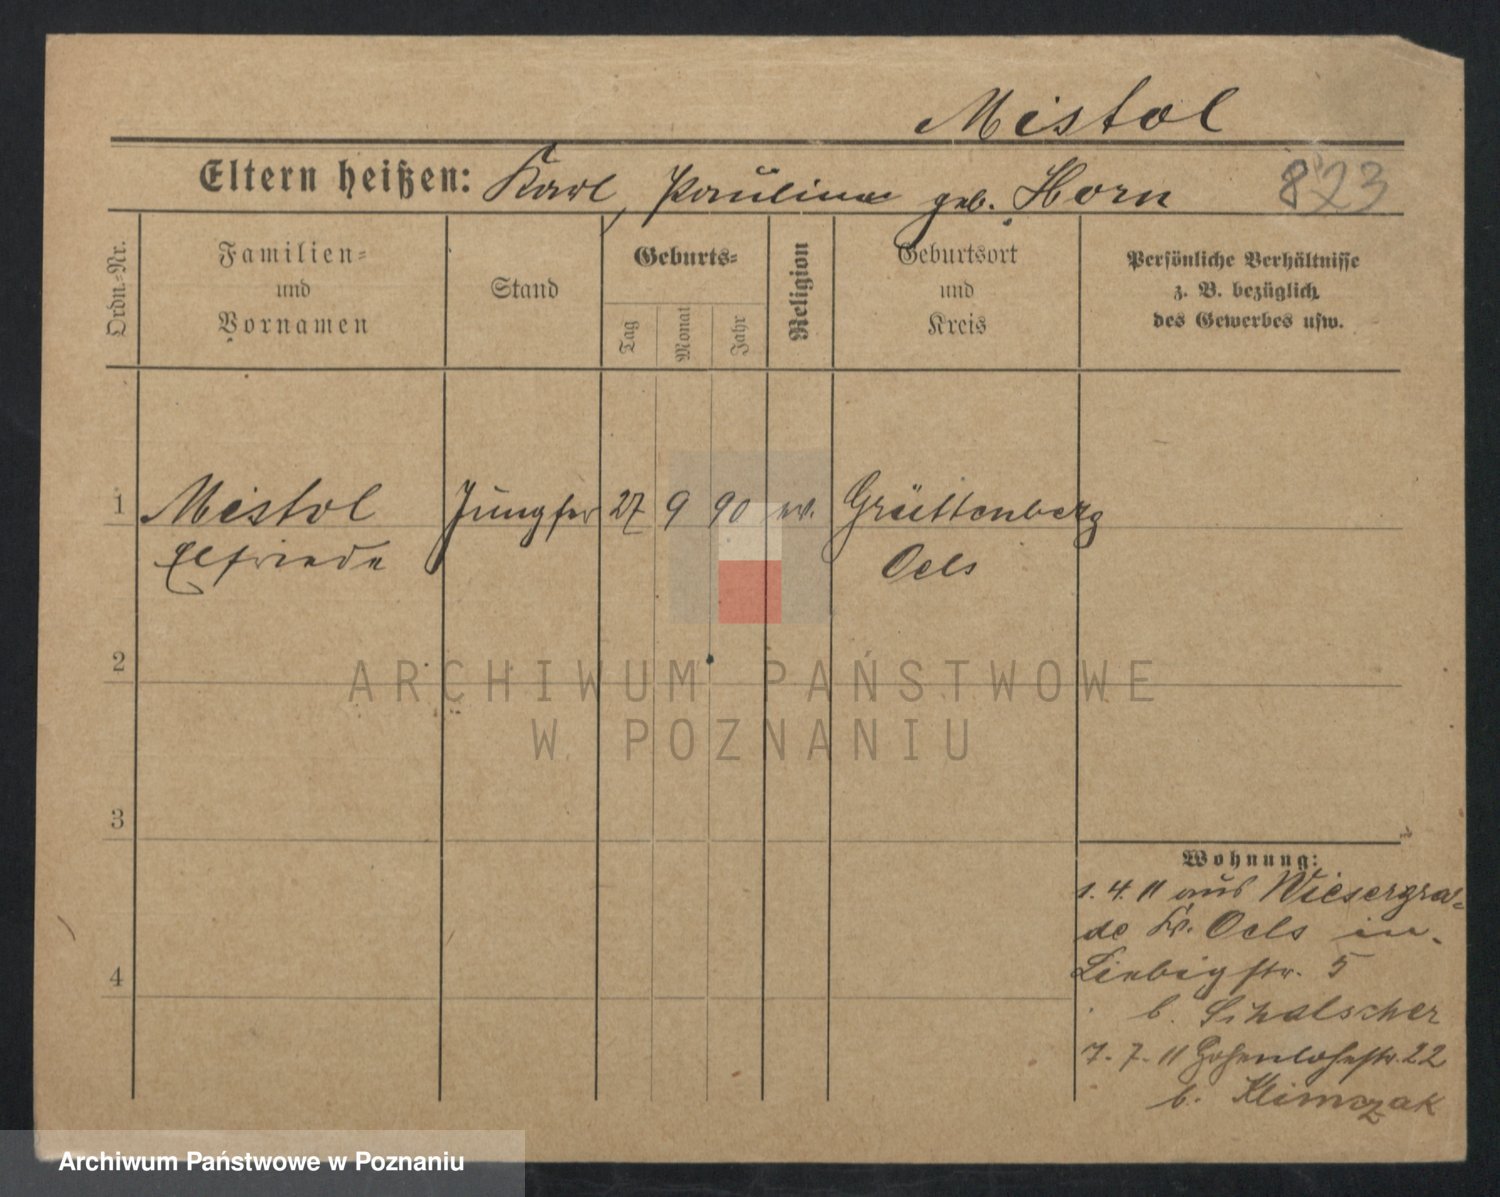 Mistol
Eltern heißen: Karl, Pauline geb. Horn 823
Ordn.-Nr.
Familien-
und
Vornamen
Stand
Geburts-
Tag
Monat
Jahr
Religion
Geburtsort
und
Kreis
Persönliche Verhältnisse
z. B. bezüglich
des Gewerbes usw.
1 Mistol Jungfer 27 9 90 ev. Grüttenberg
Elfriede Oels
2
ARCHIWUM PAŃSTWOWE
W POZNANIU
3
Wohnung:
1. 4. 11 aus Wiesergra-
de Kr. Oels in
4 Liebigstr. 5
b.
7. 7. 11 Hohenlohestr. 22
b. Klimczak
Archiwum Państwowe w Poznaniu